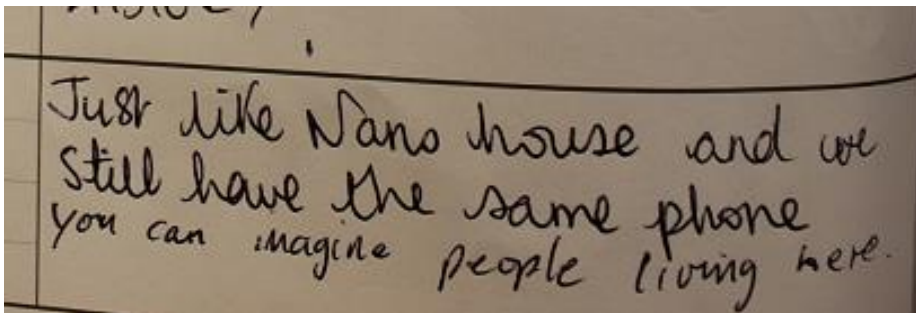 Just like Nans house and we
still have the same phone
you can imagine people living here.